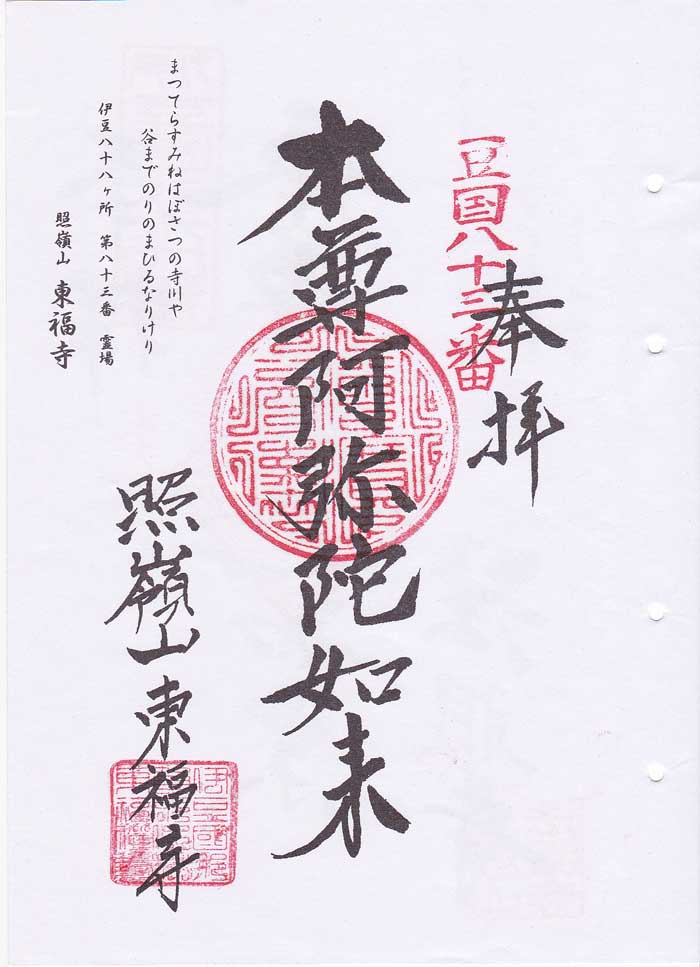 豆国八十三番
奉拝
本尊阿弥陀如来
照嶺山東福寺
まつてらすみねはぼさつの寺川や
谷までのりのまひるなりけり
伊豆八十八ヶ所 第八十三番 霊場
照嶺山 東福寺